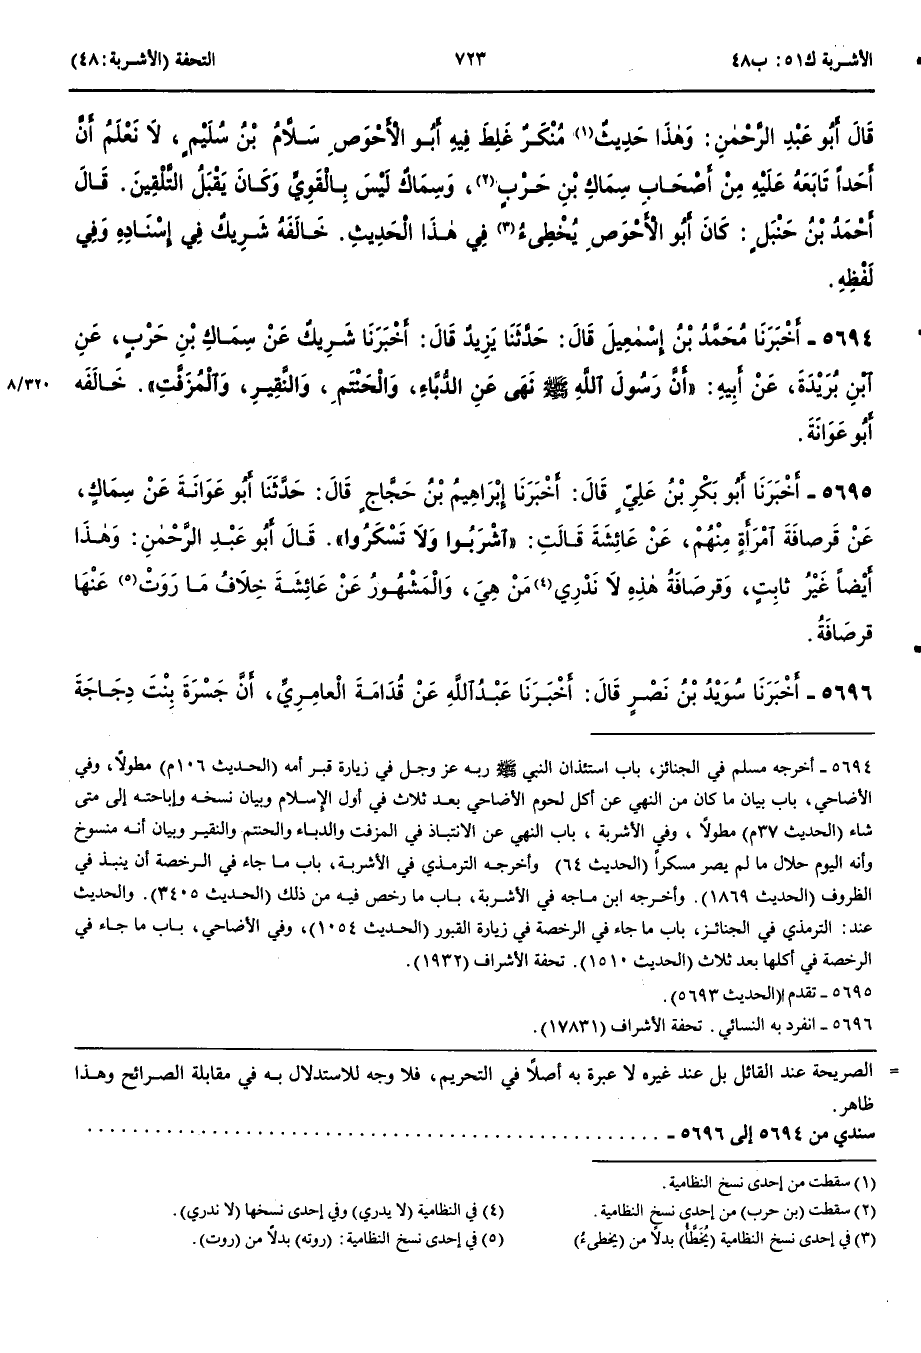 الأشربة ك٥١: ب٤٨ ٧٢٣ التحفة (الأشربة: ٤٨)
قَالَ أَبُو عَبْدِ الرَّحْمٰنِ: وَهٰذَا حَدِيثٌ(١) مُنْكَرٌ غَلِطَ فِيهِ أَبُو الْأَحْوَصِ سَلَّامُ بْنُ سُلَيْمٍ، لَا نَعْلَمُ أَنَّ
أَحَداً تَابَعَهُ عَلَيْهِ مِنْ أَصْحَابِ سِمَاكِ بْنِ حَرْبٍ(٢)، وَسِمَاكٌ لَيْسَ بِالْقَوِيِّ وَكَانَ يَقْبَلُ التَّلْقِينَ. قَالَ
أَحْمَدُ بْنُ حَنْبَلٍ: كَانَ أَبُو الْأَحْوَصِ يُخْطِىءُ(٣) فِي هٰذَا الْحَدِيثِ. خَالَفَهُ شَرِيكٌ فِي إِسْنَادِهِ وَفِي
لَفْظِهِ.
٥٦٩٤ ـ أَخْبَرَنَا مُحَمَّدُ بْنُ إِسْمٰعِيلَ قَالَ: حَدَّثَنَا يَزِيدُ قَالَ: أَخْبَرَنَا شَرِيكٌ عَنْ سِمَاكِ بْنِ حَرْبٍ، عَنِ
ٱبْنِ بُرَيْدَةَ، عَنْ أَبِيهِ: «أَنَّ رَسُولَ ٱللَّهِ ﷺ نَهَى عَنِ الدُّبَّاءِ، وَالْحَنْتَمِ، وَالنَّقِيرِ، وَالْمُزَفَّتِ». خَالَفَه ٨/٣٢٠
أَبُو عَوَانَةَ.
٥٦٩٥ ـ أَخْبَرَنَا أَبُو بَكْرِ بْنُ عَلِيٍّ قَالَ: أَخْبَرَنَا إِبْرَاهِيمُ بْنُ حَجَّاجٍ قَالَ: حَدَّثَنَا أَبُو عَوَانَةَ عَنْ سِمَاكٍ،
عَنْ قرصافَةَ ٱمْرَأَةٍ مِنْهُمْ، عَنْ عَائِشَةَ قَالَتِ: «ٱشْرَبُوا وَلَا تَسْكَرُوا». قَالَ أَبُو عَبْدِ الرَّحْمٰنِ: وَهٰذَا
أَيْضاً غَيْرُ ثَابِتٍ، وَقرصَافَةُ هٰذِهِ لَا نَدْرِي(٤) مَنْ هِيَ، وَالْمَشْهُورُ عَنْ عَائِشَةَ خِلَافُ مَا رَوَتْ(٥) عَنْهَا
قرصَافَةُ.
٥٦٩٦ ـ أَخْبَرَنَا سُوَيْدُ بْنُ نَصْرٍ قَالَ: أَخْبَرَنَا عَبْدُ ٱللَّهِ عَنْ قُدَامَةَ الْعامِرِيِّ، أَنَّ جَسْرَةَ بِنْتَ دِجَاجَةَ
٥٦٩٤ ـ أخرجه مسلم في الجنائز، باب استئذان النبي ﷺ ربه عز وجل في زيارة قبر أمه (الحديث ١٠٦م) مطولاً، وفي
الأضاحي، باب بيان ما كان من النهي عن أكل لحوم الأضاحي بعد ثلاث في أول الإسلام وبيان نسخه وإباحته إلى متى
شاء (الحديث ٣٧م) مطولاً، وفي الأشربة، باب النهي عن الانتباذ في المزفت والدباء والحنتم والنقير وبيان أنه منسوخ
وأنه اليوم حلال ما لم يصر مسكراً (الحديث ٦٤) وأخرجه الترمذي في الأشربة، باب ما جاء في الرخصة أن ينبذ في
الظروف (الحديث ١٨٦٩). وأخرجه ابن ماجه في الأشربة، باب ما رخص فيه من ذلك (الحديث ٣٤٠٥). والحديث
عند: الترمذي في الجنائز، باب ما جاء في الرخصة في زيارة القبور (الحديث ١٠٥٤)، وفي الأضاحي، باب ما جاء في
الرخصة في أكلها بعد ثلاث (الحديث ١٥١٠). تحفة الأشراف (١٩٣٢).
٥٦٩٥ ـ تقدم (الحديث ٥٦٩٣).
٥٦٩٦ ـ انفرد به النسائي. تحفة الأشراف (١٧٨٣١).
= الصريحة عند القائل بل عند غيره لا عبرة به أصلاً في التحريم، فلا وجه للاستدلال به في مقابلة الصرائح وهذا
ظاهر.
سندي من ٥٦٩٤ إلى ٥٦٩٦ ـ ................................................
(١) سقطت من إحدى نسخ النظامية.
(٢) سقطت (بن حرب) من إحدى نسخ النظامية. (٤) في النظامية (لا يدري) وفي إحدى نسخها (لا ندري).
(٣) في إحدى نسخ النظامية (يُخَطَّأُ) بدلاً من (يخطىءُ) (٥) في إحدى نسخ النظامية: (روته) بدلاً من (روت).